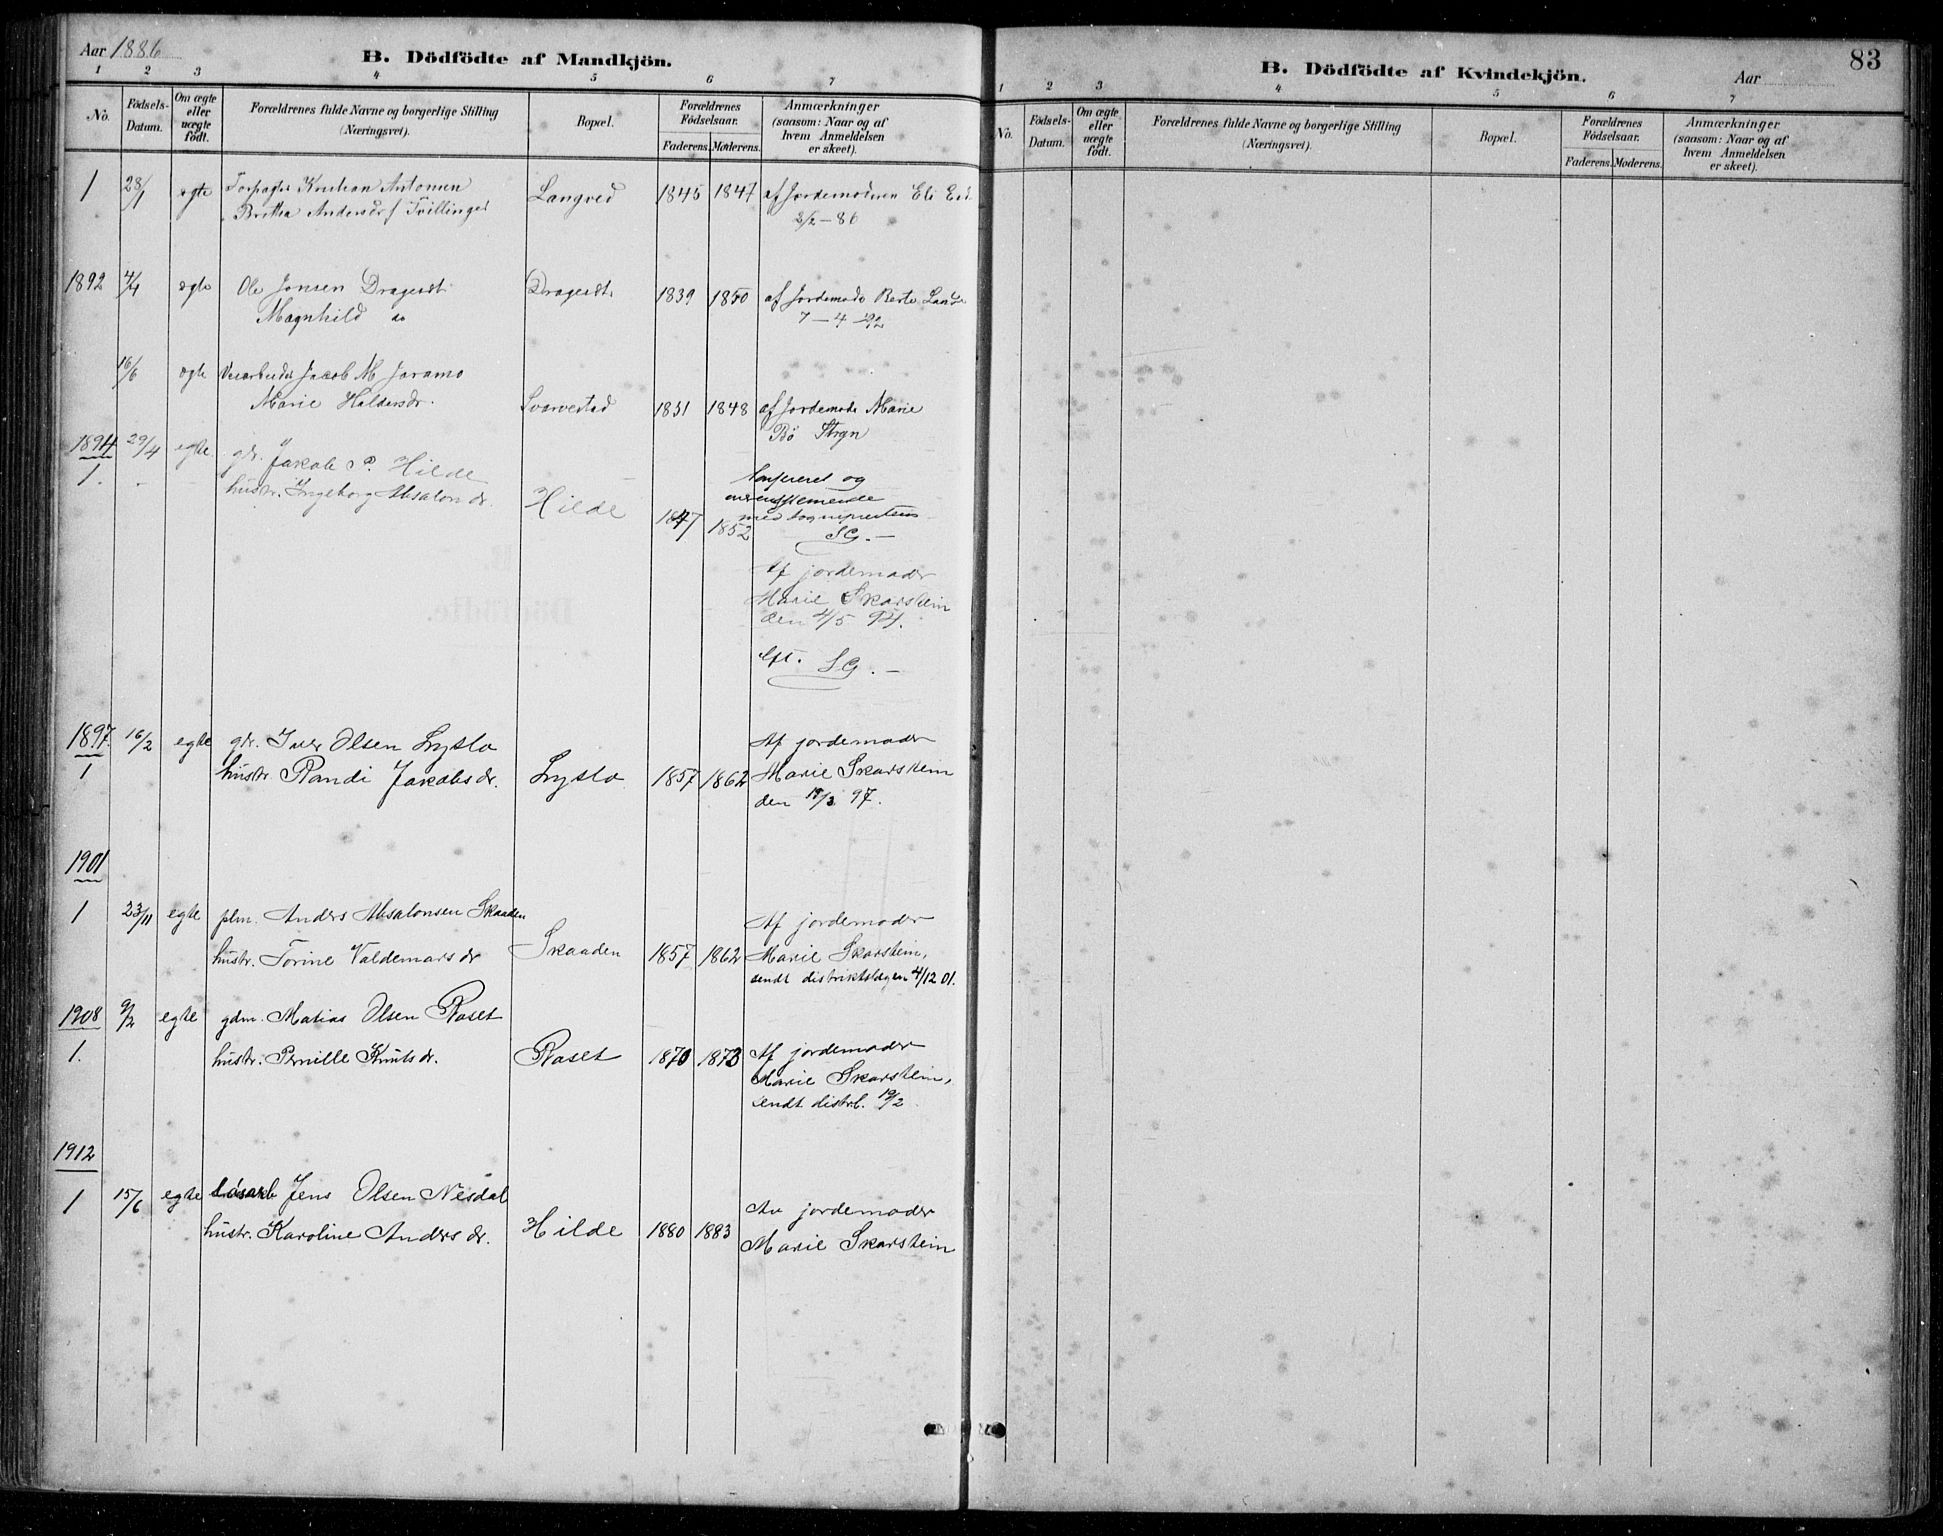 Aar 1886
B. Dödfödte af Mandkjön.
1 2 3 4 5 6 7
No.
Födsels-Datum.
Om ægte eller uægte födt.
Forældrenes fulde Navne og borgerlige Stilling
(Næringsvei).
Bopæl.
Forældrenes Födselsaar.
Faderens. Moderens.
Anmærkninger
(saasom: Naar og af
hvem Anmeldelsen
er skeet).
1 28/1 ægte Antonsen Langved 1845 1847 af Jordemoderen Eli
Britha Andersdr Tvillinger 3/2 - 86
1892 4/4 ægte Ole Jonsen Dragesæt 1839 1850 af Jordemode Berte Lande
Magnhild do 7 - 4 - 92
16/6 ægte Jacob M Jaramo
Marie Haldersdr. Svarvestad 1831 1848 af Jordemode Marie
Bö Stryn
1894 29/4 egte gbr. Jakob P. Hilde
1. hustr. Ingeborg Absalonsdr. Hilde 1847 1852
Konfereret og
overensstemmende
med sogneprestens
SG. -
Af jordemoder
Marie Skarstein
den 4/5 94.
Eft. SG. -
1897. 16/2 egte gbr. Iver Olsen Lysto Af jordemoder
1 hustr. Randi Jakobsdr. Lysto 1857 1862 Marie Skarstein
den 18/3 97.
1901
1 23/11 egte plm. Anders Absalonsen Skaaden Af jordemoder
hustr. Torine Valdemarsdr Skaaden 1857 1862 Marie Skarstein,
sendt distriktslægen 4/12 01.
1908 9/2 egte gdm. Matias Olsen Raset
1. hustr. Pernille Knutsdr. Raset 1870 1873 Af jordemoder
Marie Skarstein,
sendt distrl. 19/2
1912
1 15/6 egte Løsarb Jens Olsen Nesdal Av jordemoder
hustr. Karoline Andersdr. Hilde 1880 1883 Marie Skarstein
83
B. Dödfödte af Kvindekjön.
Aar
1 2 3 4 5 6 7
No.
Födsels-Datum.
Om ægte eller uægte födt.
Forældrenes fulde Navne og borgerlige Stilling
(Næringsvei).
Bopæl.
Forældrenes Födselsaar.
Faderens. Moderens.
Anmærkninger
(saasom: Naar og af
hvem Anmeldelsen
er skeet).